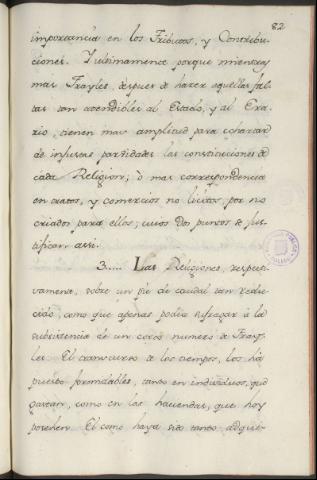 82
importancia en los Tributos, y Contribu-
ciones. Y ultimamente porque mientras
mas Frayles, despues de hacer aquellas fal-
tas tan atendibles al Estado, y al Era-
rio, tienen mas amplitud para coartar
de infusas las constituciones de
cada Religion; ò mas correspondencia
en tratos, y comercios no licitos, por no
criados para ellos; cuios dos puntos se jus-
tifican assi.
3.... Las Religiones, respecti-
vamente, sobre un pie de caudal tan reduci-
cido, como que apenas podia sufragar à la
subsistencia de un corto numero de Fray-
les. El transcurso de los tiempos, los há
puesto formidables, tanto en individuos, que
gastan, como en las haciendas, que hoy
posehen. El como haya sido tanto adqui-